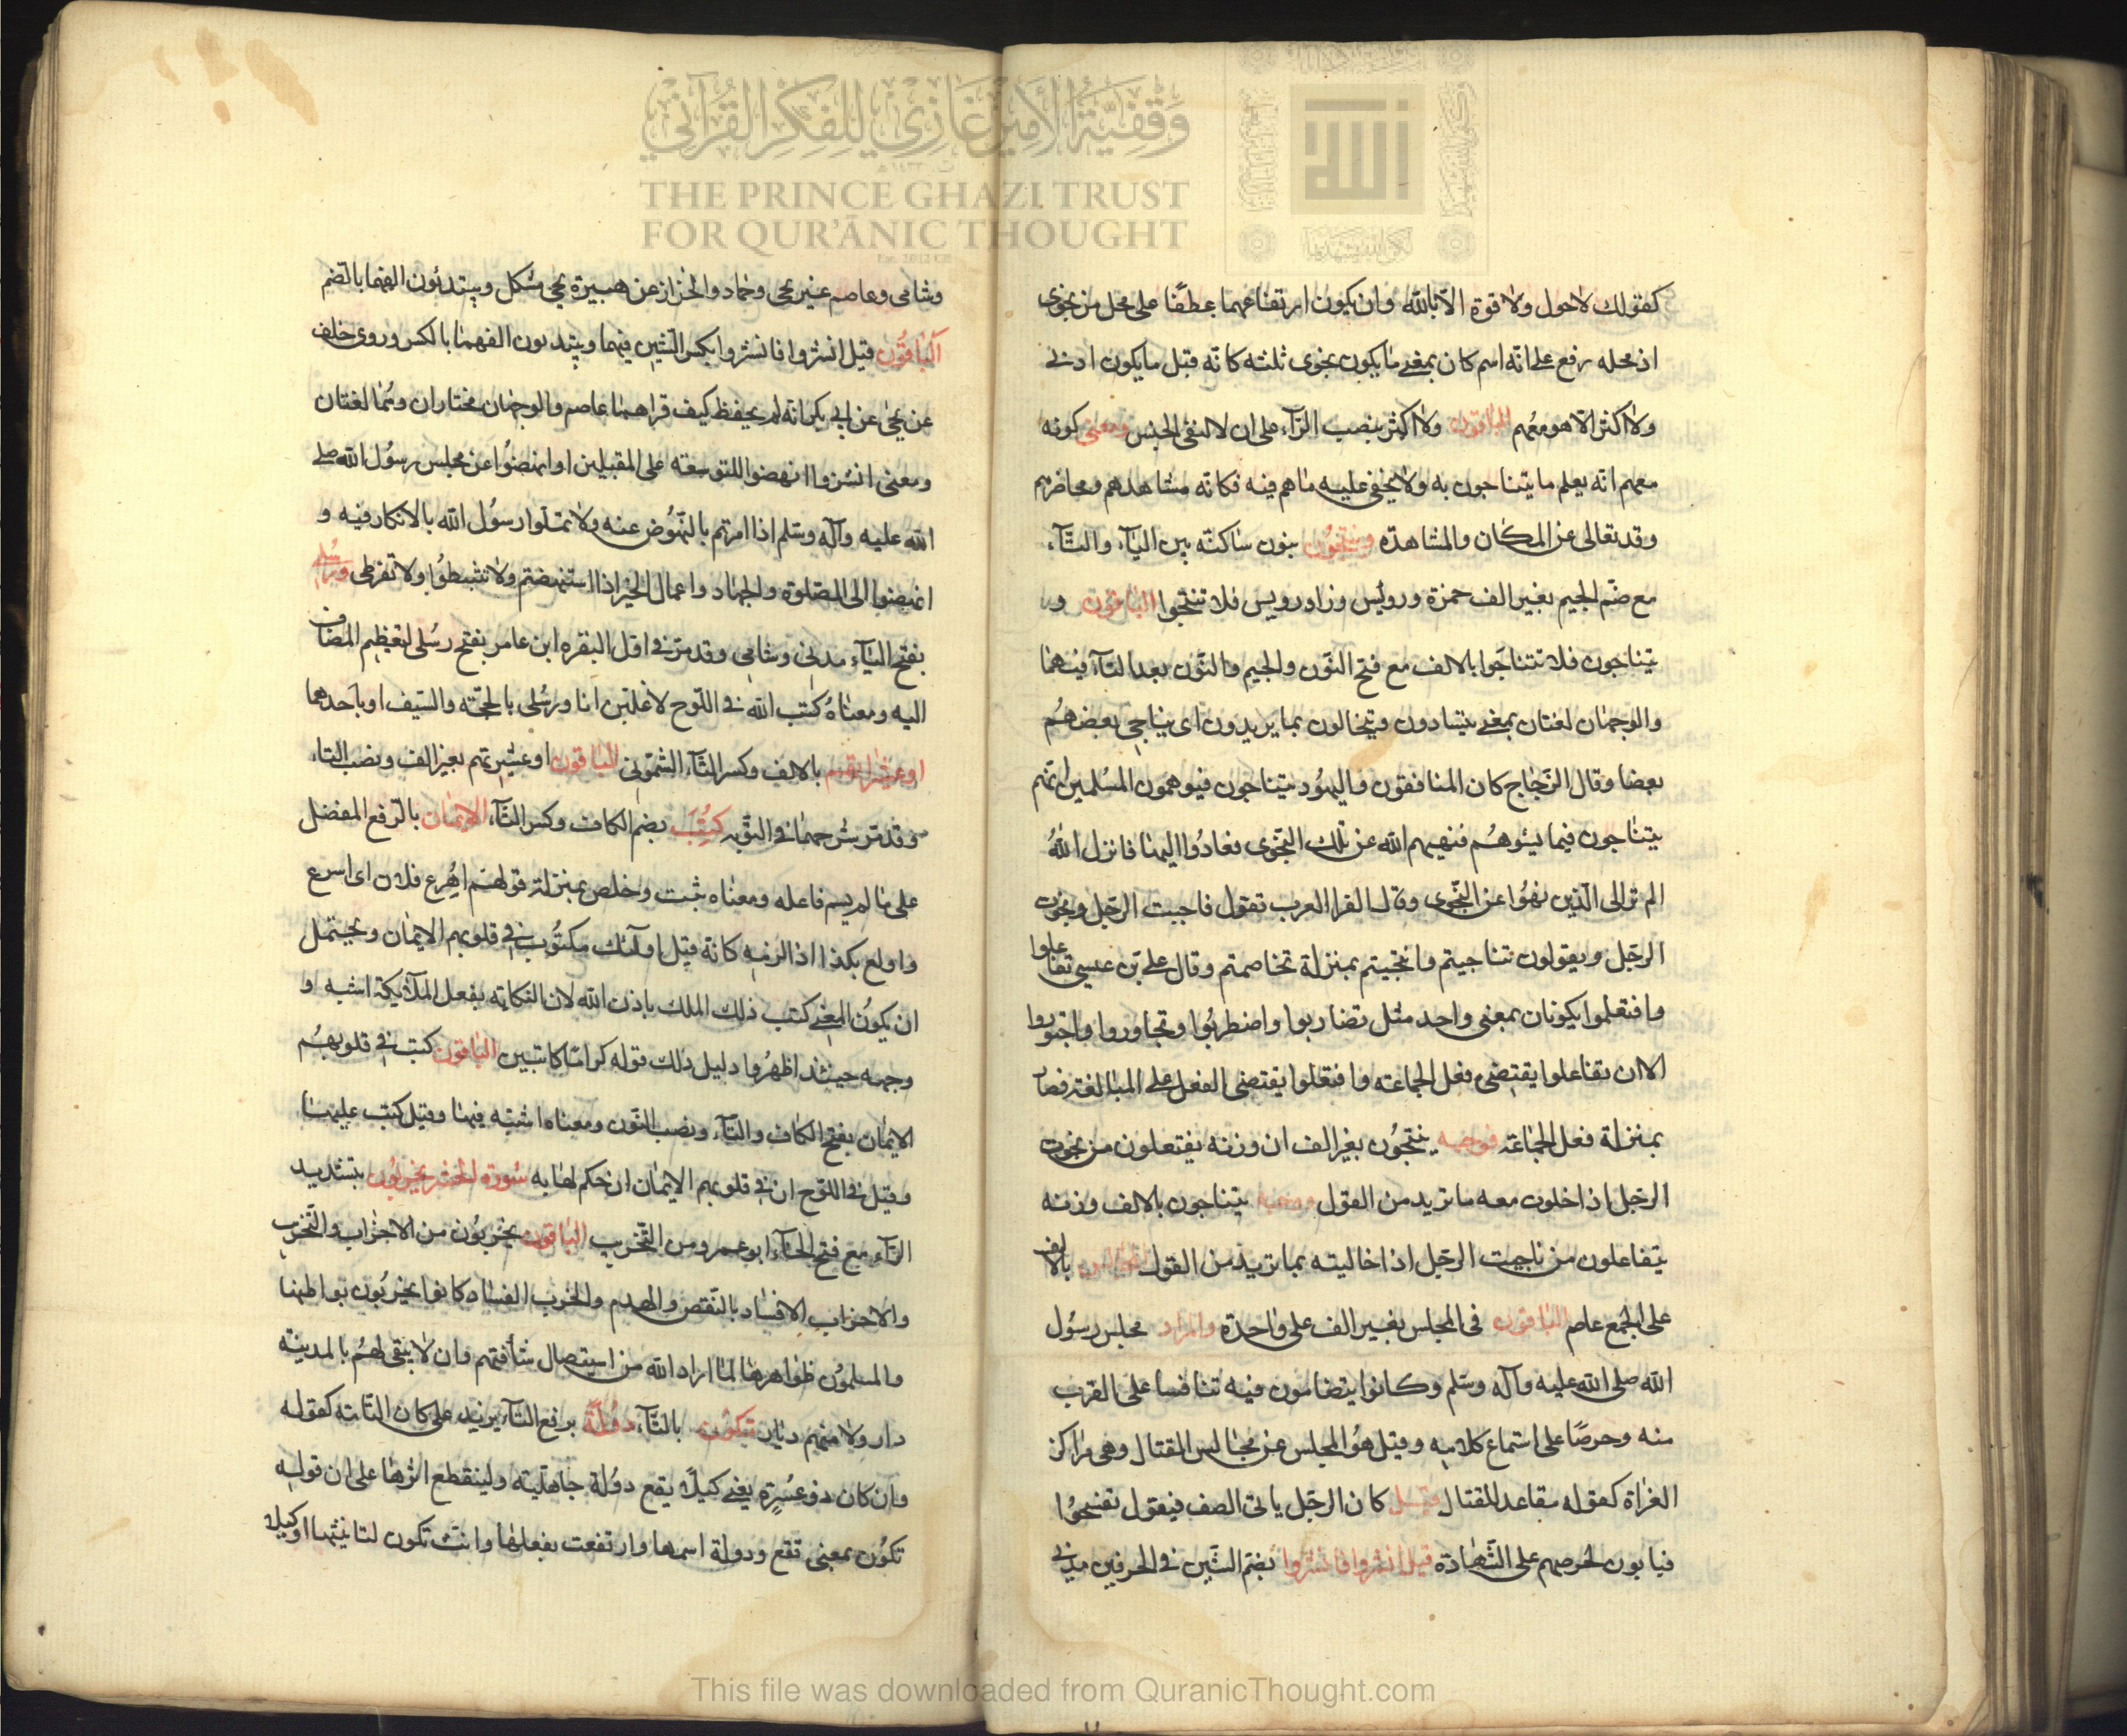 كقولك لاحول ولا قوة الا بالله وان يكون ارتفاعهما عطفًا على محل من نجوى
اذ محله رفع على انه اسم كان بمعنى ما يكون نجوى ثلثه كانه قيل ما يكون ادنى
ولا اكثر الا هو معهم الباقون ولا اكثر بنصب الرآء على ان لا لنفى الجنس ومعنى كونه
معهم انه يعلم ما يتناجون به ولا يخفى عليه ما هم فيه فكانه مشاهدهم ومحاضرهم
وقد تعالى عن المكان والمشاهدة وينتجون بنون ساكنة بين اليآء والتآء
مع ضم الجيم بغير الف حمزة ورويس وزاد رويس فلا تنتجوا الباقون و
يتناجون فلا تتناجوا بالالف مع فتح النون والجيم والنون بعد التآء فيهما
والوجهان لغتان بمعنى يتسادون ويتخالون بما يريدون اى يناجى بعضهم
بعضا وقال الزجاج كان المنافقون واليهود يتناجون فيوهمون المسلمين انهم
يتناجون فيما يسوهم فنهيهم الله عن تلك النجوى فعادوا اليها فانزل الله
الم تر الى الذين نهوا عن النجوى وقال الفرا العرب تقول ناجيت الرجل ونجوت
الرجل ويقولون تناجيتم وانتجيتم بمنزلة تخاصمتم وقال على بن عيسى تفاعلوا
وافتعلوا يكونان بمعنى واحد مثل تضاربوا واضطربوا وتجاوروا واجتوروا
الا ان تفاعلوا يقتضى فعل الجماعة وافتعلوا يقتضى الفعل على المبالغة فصار
بمنزلة فعل الجماعة فوجه ينتجون بغير الف ان وزنه يفتعلون من نجوت
الرجل اذا خلوت معه ما تريد من القول ووجه يتناجون بالالف وزنه
يتفاعلون من ناجيت الرجل اذا خاليته بما تريد من القول المجالس بالالف
على الجمع عاصم الباقون فى المجلس بغير الف على واحدة والمراد مجلس رسول
الله صلى الله عليه وآله وسلم وكانوا يتضامون فيه تنافسا على القرب
منه وحرصًا على استماع كلامه وقيل هو المجلس من مجالس القتال وهى مراكز
الغزاة كقوله مقاعد للقتال وقيل كان الرجل ياتى الصف فيقول تفسحوا
فيابون لحرصهم على الشهادة قيل انشزوا فانشزوا بضم الشين فى الحرفين مدنى
وشامى وعاصم غير يحى وحماد والخزاز عن هبيرة يحى مشكل ويبتدئون الفهما بالضم
الباقون قيل انشزوا فانشزوا بكسر الشين فيهما ويبتدىون الفهما بالكسر وروى خلف
عن يحى عن ابى بكر انه لم يحفظ كيف قراهما عاصم والوجهان مختاران وهما لغتان
ومعنى انشزوا انهضوا للتوسعة على المقبلين او انهضوا عن مجلس رسول الله صلى
الله عليه وآله وسلم اذا امرتم بالنهوض عنه ولا تملوا رسول الله بالانكار فيه و
انهضوا الى الصلوة والجهاد واعمال الخير اذا استنهضتم ولا تثبطوا ولا تفرطى ورسلى
بفتح اليآء مدنى وشامى وقد مر فى اول البقره ابن عامر بفتح رسلى لتعظيم المضاف
اليه ومعناه كتب الله فى اللوح لاغلبن انا ورسلى بالحجة والسيف او باحدهما
او عشيراتهم بالالف وكسر التآء الشمونى الباقون او عشيرتهم بغير الف ونصب التاء
وقد مر شرحهما فى التوبه كتب بضم الكاف وكسر التآء الايمان بالرفع المفضل
على ما لم يسم فاعله ومعناه ثبت وخلص بمنزلة قولهم اهرع فلان اى اسرع
واولع بكذا اذا لزمه كانه قيل اولئك مكتوب فى قلوبهم الايمان ويحتمل
ان يكون المعنى كتب ذلك الملك باذن الله لان الكتابه بفعل الملائكة اشبه و
وجهه حيثذ اظهروا دليل ذلك قوله كراما كاتبين الباقون كتب فى قلوبهم
الايمان بفتح الكاف والتآء ونصب النون ومعناه اثبته فيها وقيل كتب عليها
وقيل فى اللوح ان فى قلوبهم الايمان ان حكم لها به سورة الحشر يخربون بتشديد
الرآء مع فتح الخآء ابو عمرو من التخريب الباقون يخربون من الاخراب والتخريب
والاخراب الافساد بالنقض والهدم والخرب الفساد كانوا يخربون بواطنها
والمسلمون ظواهرها لما اراد الله من استيصال شافتهم وان لا يبقى لهم بالمدينة
دار ولا منهم ديار تكون بالتآء دولة برفع التآء يزيد على كان التامه كقوله
وان كان ذو عسرة يعنى كيلا يقع دولة جاهلية ولينقطع اثرها على ان قوله
تكون بمعنى تقع ودولة اسمها وارتفعت بفعلها وانث تكون لتانيثها او كيلا